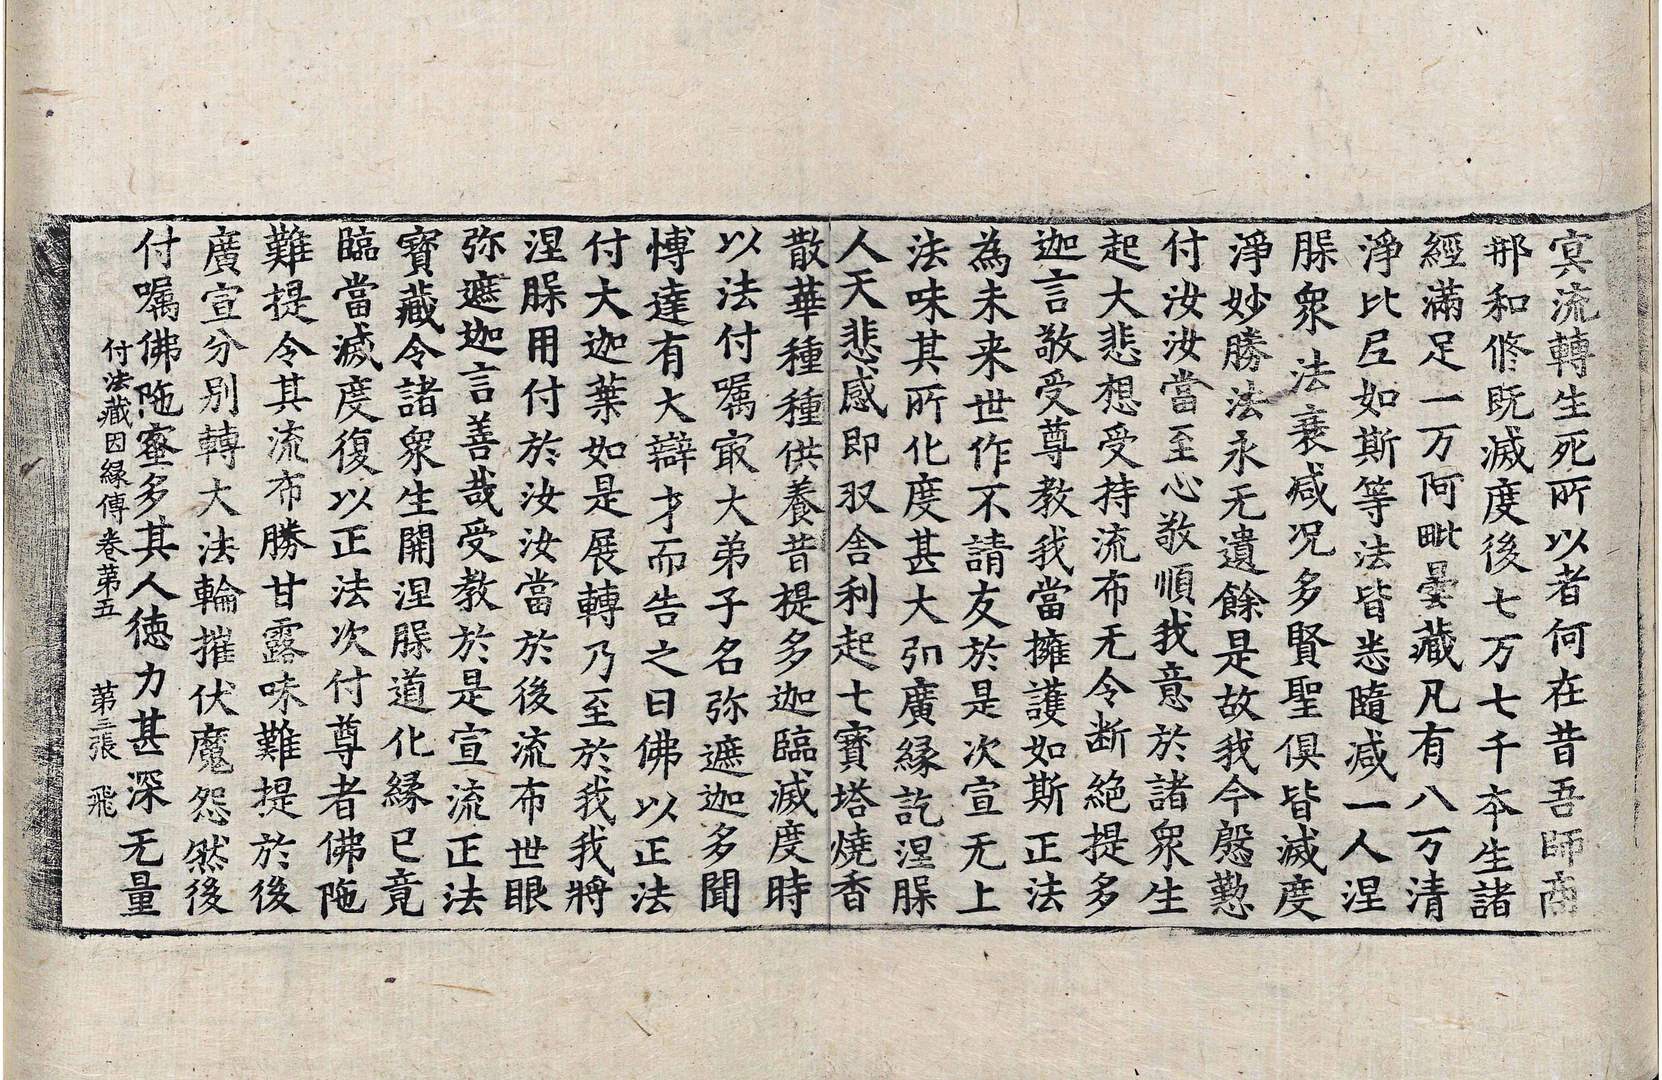 冥流轉生死所以者何在昔吾師商
那和修既滅度後七万七千本生諸
經滿足一万阿毗曇藏凡有八万清
淨比丘如斯等法皆悉隨滅一人涅
腂衆法衰减况多賢聖俱皆滅度
淨妙勝法永无遺餘是故我今慇懃
付汝汝當至心敬順我意於諸衆生
起大悲想受持流布无令断絶提多
迦言敬受尊教我當擁護如斯正法
為未来世作不請友於是次宣无上
法味其所化度甚大弘廣縁訖涅腂
人天悲感即収舍利起七寶塔燒香
散華種種供養昔提多迦臨滅度時
以法付嘱㝡大弟子名弥遮迦多聞
愽達有大辯才而告之曰佛以正法
付大迦葉如是展轉乃至於我我將
涅腂用付於汝汝當於後流布世眼
弥遮迦言善哉受教於是宣流正法
寶藏令諸衆生開涅腂道化縁已竟
臨當滅度復以正法次付尊者佛陁
難提令其流布勝甘露味難提於後
廣宣分别轉大法輪摧伏魔怨然後
付嘱佛陁蜜多其人德力甚深无量
付法藏因縁傳卷第五 第三張 飛